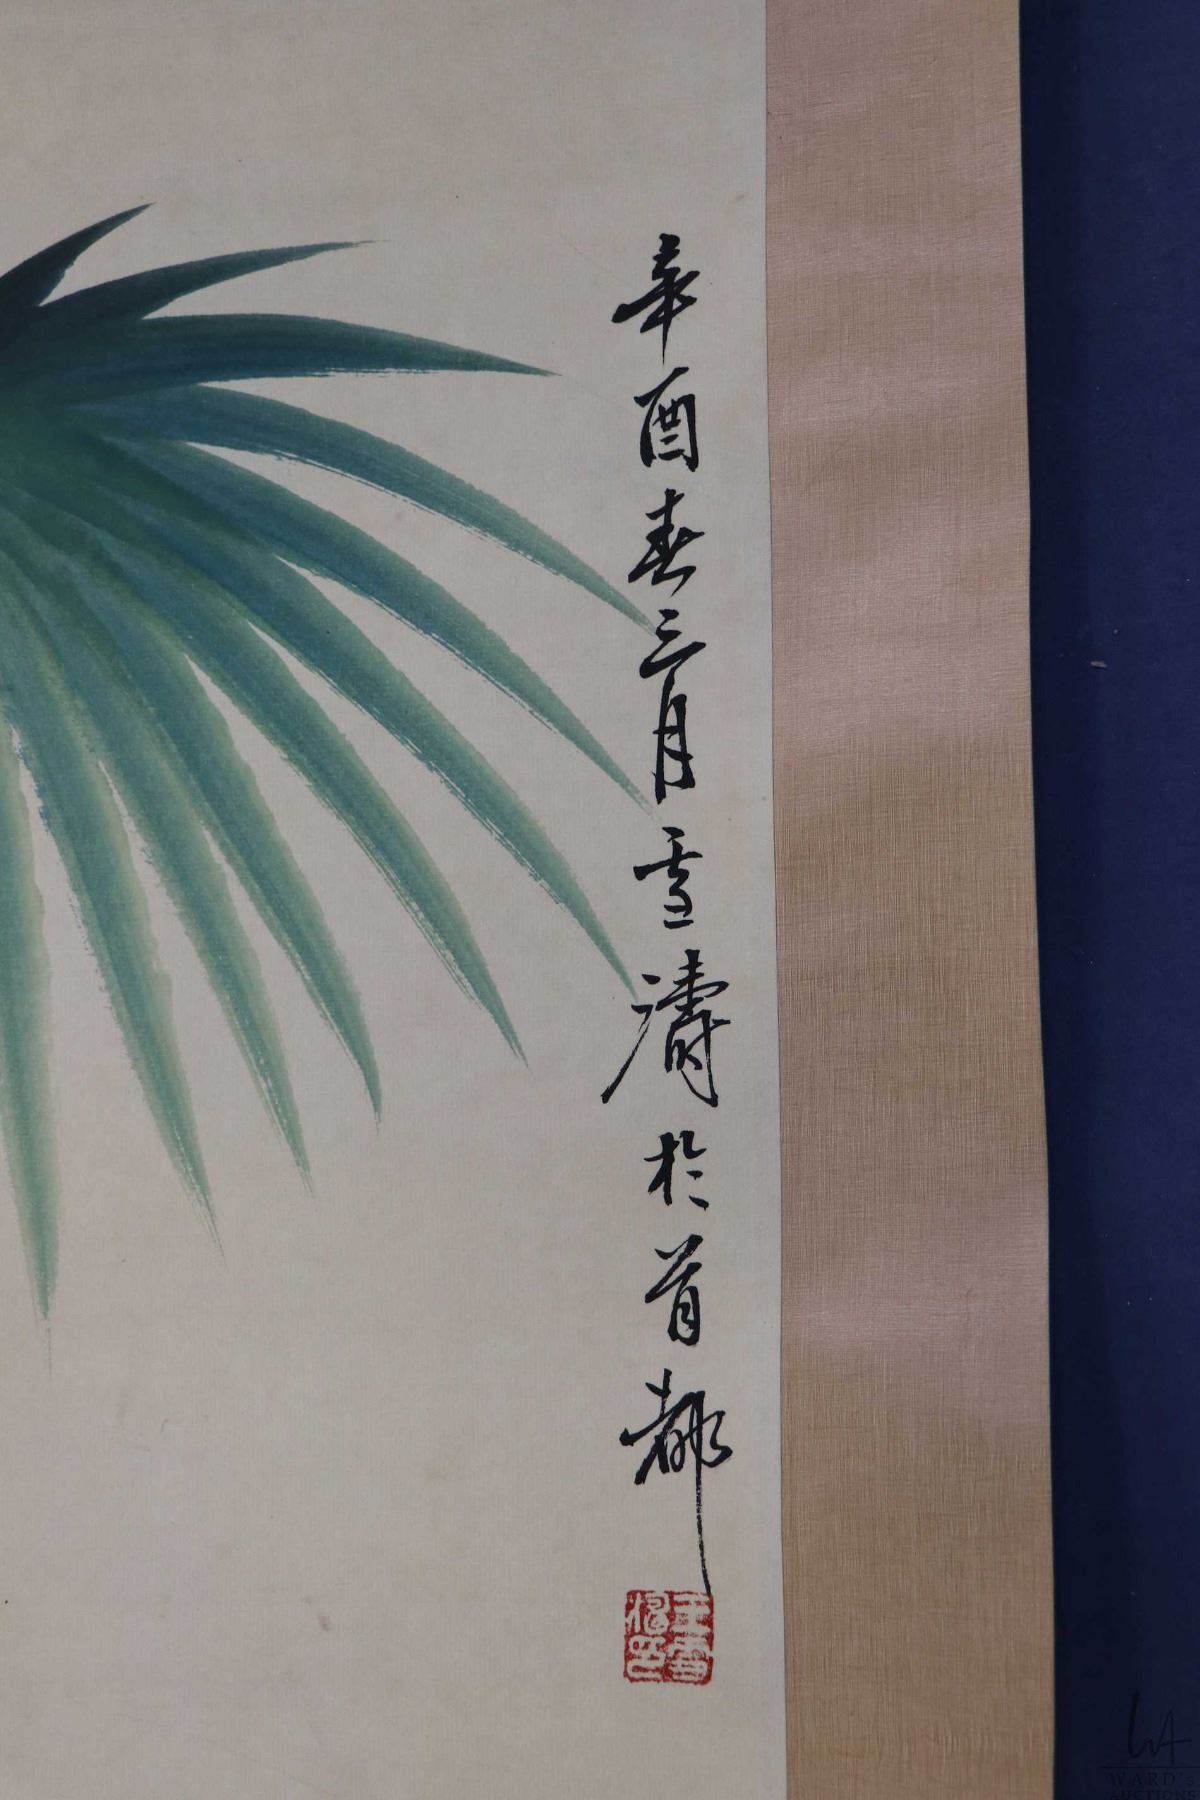 辛酉春三月雪濤於首都
王雪濤印
WARD'S
AUCTIONS